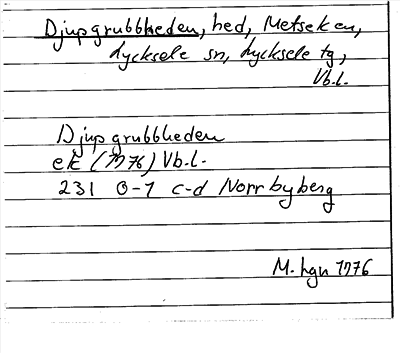 Djupgrubbheden, hed, Metseken,
Lycksele sn, Lycksele tg,
Vb.l.
Djupgrubbheden
ek (1976) Vb.l.
231 0-1 c-d Norrbyberg
M. Lgn 1976